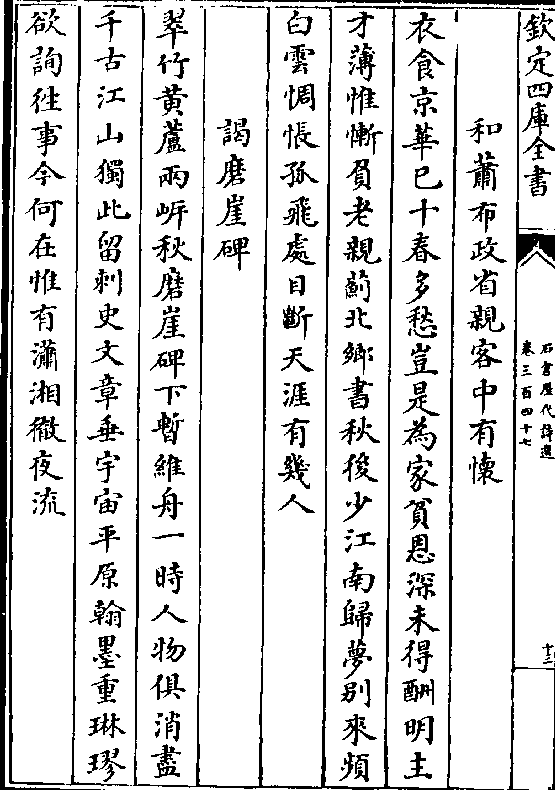 欽定四庫全書
石倉歷代詩選
卷三百四十七
十三
和蕭布政省親客中有懷
衣食京華已十春多愁豈是為家貧恩深未得酬明主
才薄惟慚負老親薊北鄉書秋後少江南歸夢別來頻
白雲惆悵孤飛處目斷天涯有幾人
謁磨崖碑
翠竹黃蘆兩岍秋磨崖碑下暫維舟一時人物俱消盡
千古江山獨此留刺史文章垂宇宙平原翰墨重琳璆
欲詢往事今何在惟有瀟湘徹夜流